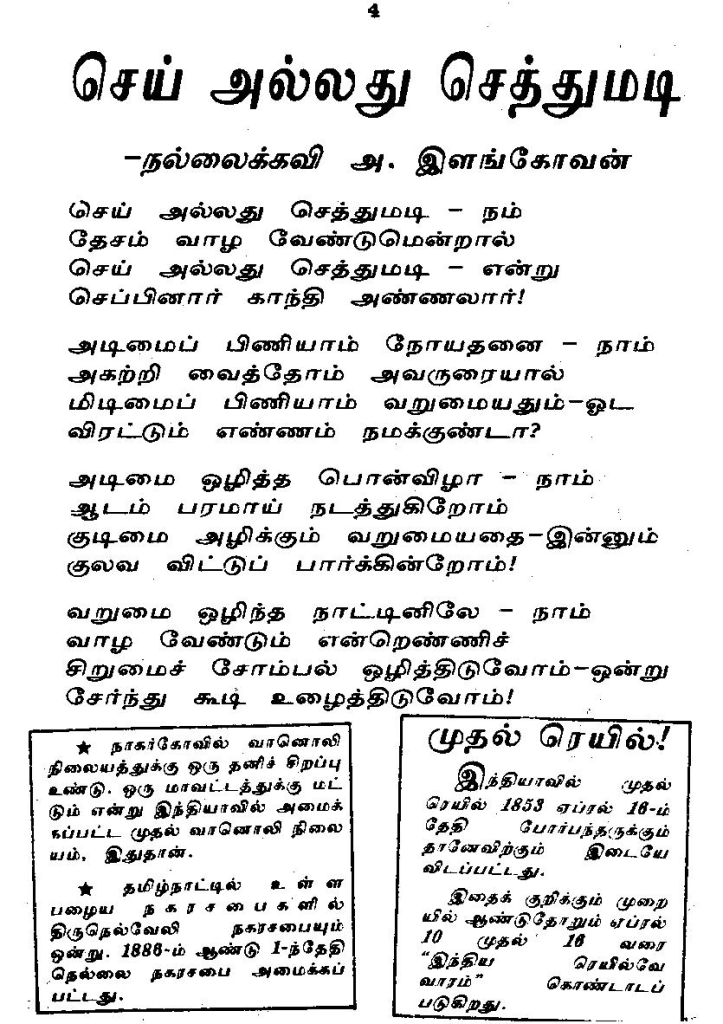 4
செய் அல்லது செத்துமடி
-நல்லைக்கவி அ. இளங்கோவன்
செய் அல்லது செத்துமடி - நம்
தேசம் வாழ வேண்டுமென்றால்
செய் அல்லது செத்துமடி - என்று
செப்பினார் காந்தி அண்ணலார்!
அடிமைப் பிணியாம் நோயதனை - நாம்
அகற்றி வைத்தோம் அவருரையால்
மிடிமைப் பிணியாம் வறுமையதும்-ஓட
விரட்டும் எண்ணம் நமக்குண்டா?
அடிமை ஒழித்த பொன்விழா - நாம்
ஆடம் பரமாய் நடத்துகிறோம்
குடிமை அழிக்கும் வறுமையதை-இன்னும்
குலவ விட்டுப் பார்க்கின்றோம்!
வறுமை ஒழிந்த நாட்டினிலே - நாம்
வாழ வேண்டும் என்றெண்ணிச்
சிறுமைச் சோம்பல் ஒழித்திடுவோம்-ஒன்று
சேர்ந்து கூடி உழைத்திடுவோம்!
★ நாகர்கோவில் வானொலி
நிலையத்துக்கு ஒரு தனிச் சிறப்பு
உண்டு. ஒரு மாவட்டத்துக்கு மட்
டும் என்று இந்தியாவில் அமைக்
கப்பட்ட முதல் வானொலி நிலை
யம், இதுதான்.
★ தமிழ்நாட்டில் உள்ள
பழைய நகரசபைகளில்
திருநெல்வேலி நகரசபையும்
ஒன்று. 1886-ம் ஆண்டு 1-ந்தேதி
நெல்லை நகரசபை அமைக்கப்
பட்டது.
முதல் ரெயில்!
இந்தியாவில் முதல்
ரெயில் 1853 ஏப்ரல் 16-ம்
தேதி போர்பந்தருக்கும்
தானேவிற்கும் இடையே
விடப்பட்டது.
இதைக் குறிக்கும் முறை
யில் ஆண்டுதோறும் ஏப்ரல்
10 முதல் 16 வரை
"இந்திய ரெயில்வே
வாரம்" கொண்டாடப்
படுகிறது.